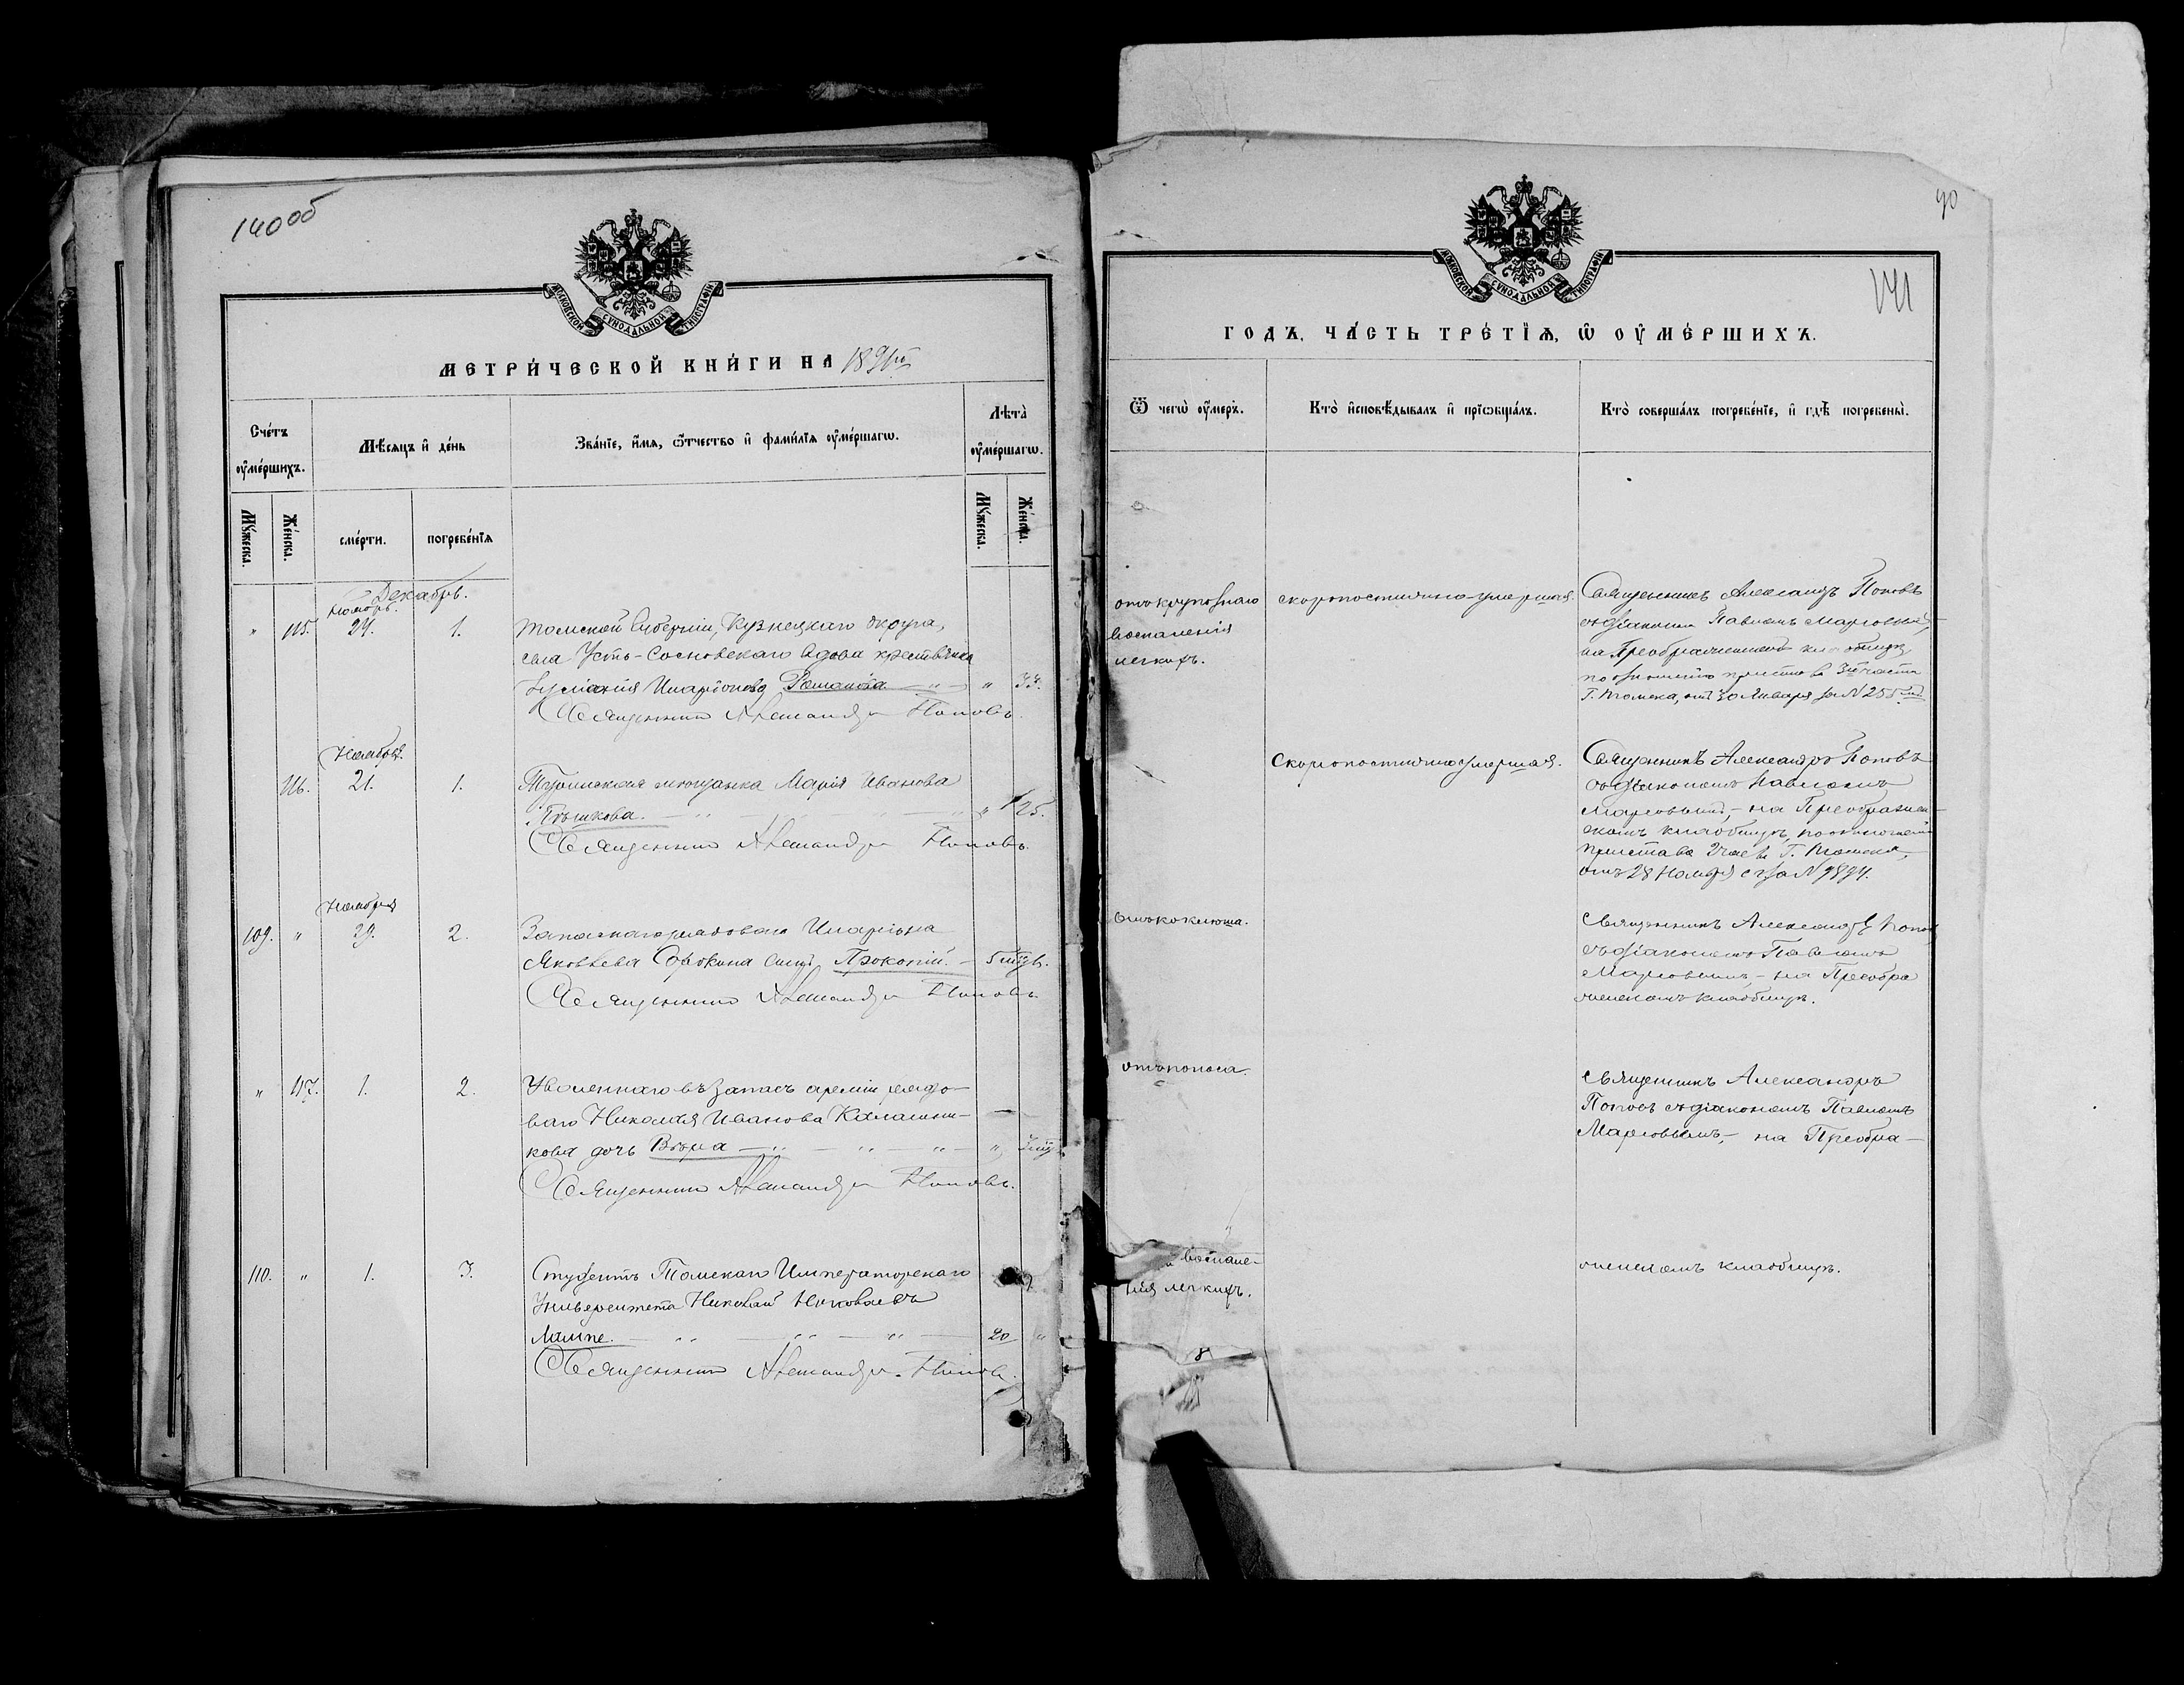 140 об
МОСКОВСКОЙ СѴНОДАЛЬНОЙ ТИПОГРАФІИ
МЕТРИ́ЧЕСКОЙ КНИ́ГИ НА 1891й
Сче́тъ ѹ҆ме́ршихъ.
Мѣ́сяцъ и҆ де́нь
Зва́нїе, и҆́мѧ, ѻ҆́тчество и҆ фами́лїѧ ѹ҆ме́ршагѡ.
Лѣ́та ѹ҆ме́ршагѡ.
Мꙋ́жеска.
Же́нска.
сме́рти.
погребе́нїѧ
Мꙋ́жеска.
Же́нска.
Декабрь.
Ноябрь.
" 115. 24. 1. Томской Губерніи, Кузнецкаго округа,
села Усть-Сосновскаго вдова крестьянка
Иларіонова Романова " 33.
Священникъ Александръ Поповъ.
Ноябрь.
116. 21. 1. Туринская мѣщанка Марія Иванова
Пѣшкова. " 25.
Священникъ Александръ Поповъ.
Ноября
109. " 29. 2. Запаснаго рядоваго Иларіона
Яковлева Сорокина сынъ Прокопій. 5 мцвъ.
Священникъ Александръ Поповъ.
" 117. 1. 2. Уволеннаго въ запасъ арміи рядо-
ваго Николая Иванова Калашни-
кова дочь Вѣра "
Священникъ Александръ Поповъ.
110. " 1. 3. Студентъ Томскаго Императорскаго
Университета Николай Николаевъ
Лампе. 20 "
Священникъ Александръ Поповъ.
90
141
МОСКОВСКОЙ СѴНОДАЛЬНОЙ ТИПОГРАФІИ
ГОДЪ, ЧА́СТЬ ТРЕ́ТЇѦ, Ѡ҆ ОУ҆МЕ́РШИХЪ.
Ѿ чегѡ̀ ѹ҆́меръ.
Кто̀ и҆сповѣ́дывалъ и҆ прїѡбща́лъ.
Кто̀ соверша́лъ погребе́нїе, и҆ гдѣ̀ погребены̀.
отъ крупознаго
воспаленія
легкихъ.
скоропостижно умершая.
Священникъ Александръ Поповъ
съ діакономъ Павломъ
на Преображенскомъ кладбищѣ,
по отношенію пристава 3й части
г. Томска, отъ 30 Января за № 255
Скоропостижно умершая.
Священникъ Александръ Поповъ
съ діакономъ Павломъ
на Преображен-
скомъ кладбищѣ, по отношенію
пристава 2 части г. Томска,
отъ 28 Ноября с г за № 9894.
Отъ коклюша.
Священникъ Александръ Попов
съ діакономъ Павломъ
на Преобра
женскомъ кладбищѣ.
отъ поноса
Священникъ Александръ
Поповъ съ діакономъ Павломъ
на Преобра-
воспале-
нія легкихъ.
женскомъ кладбищѣ.